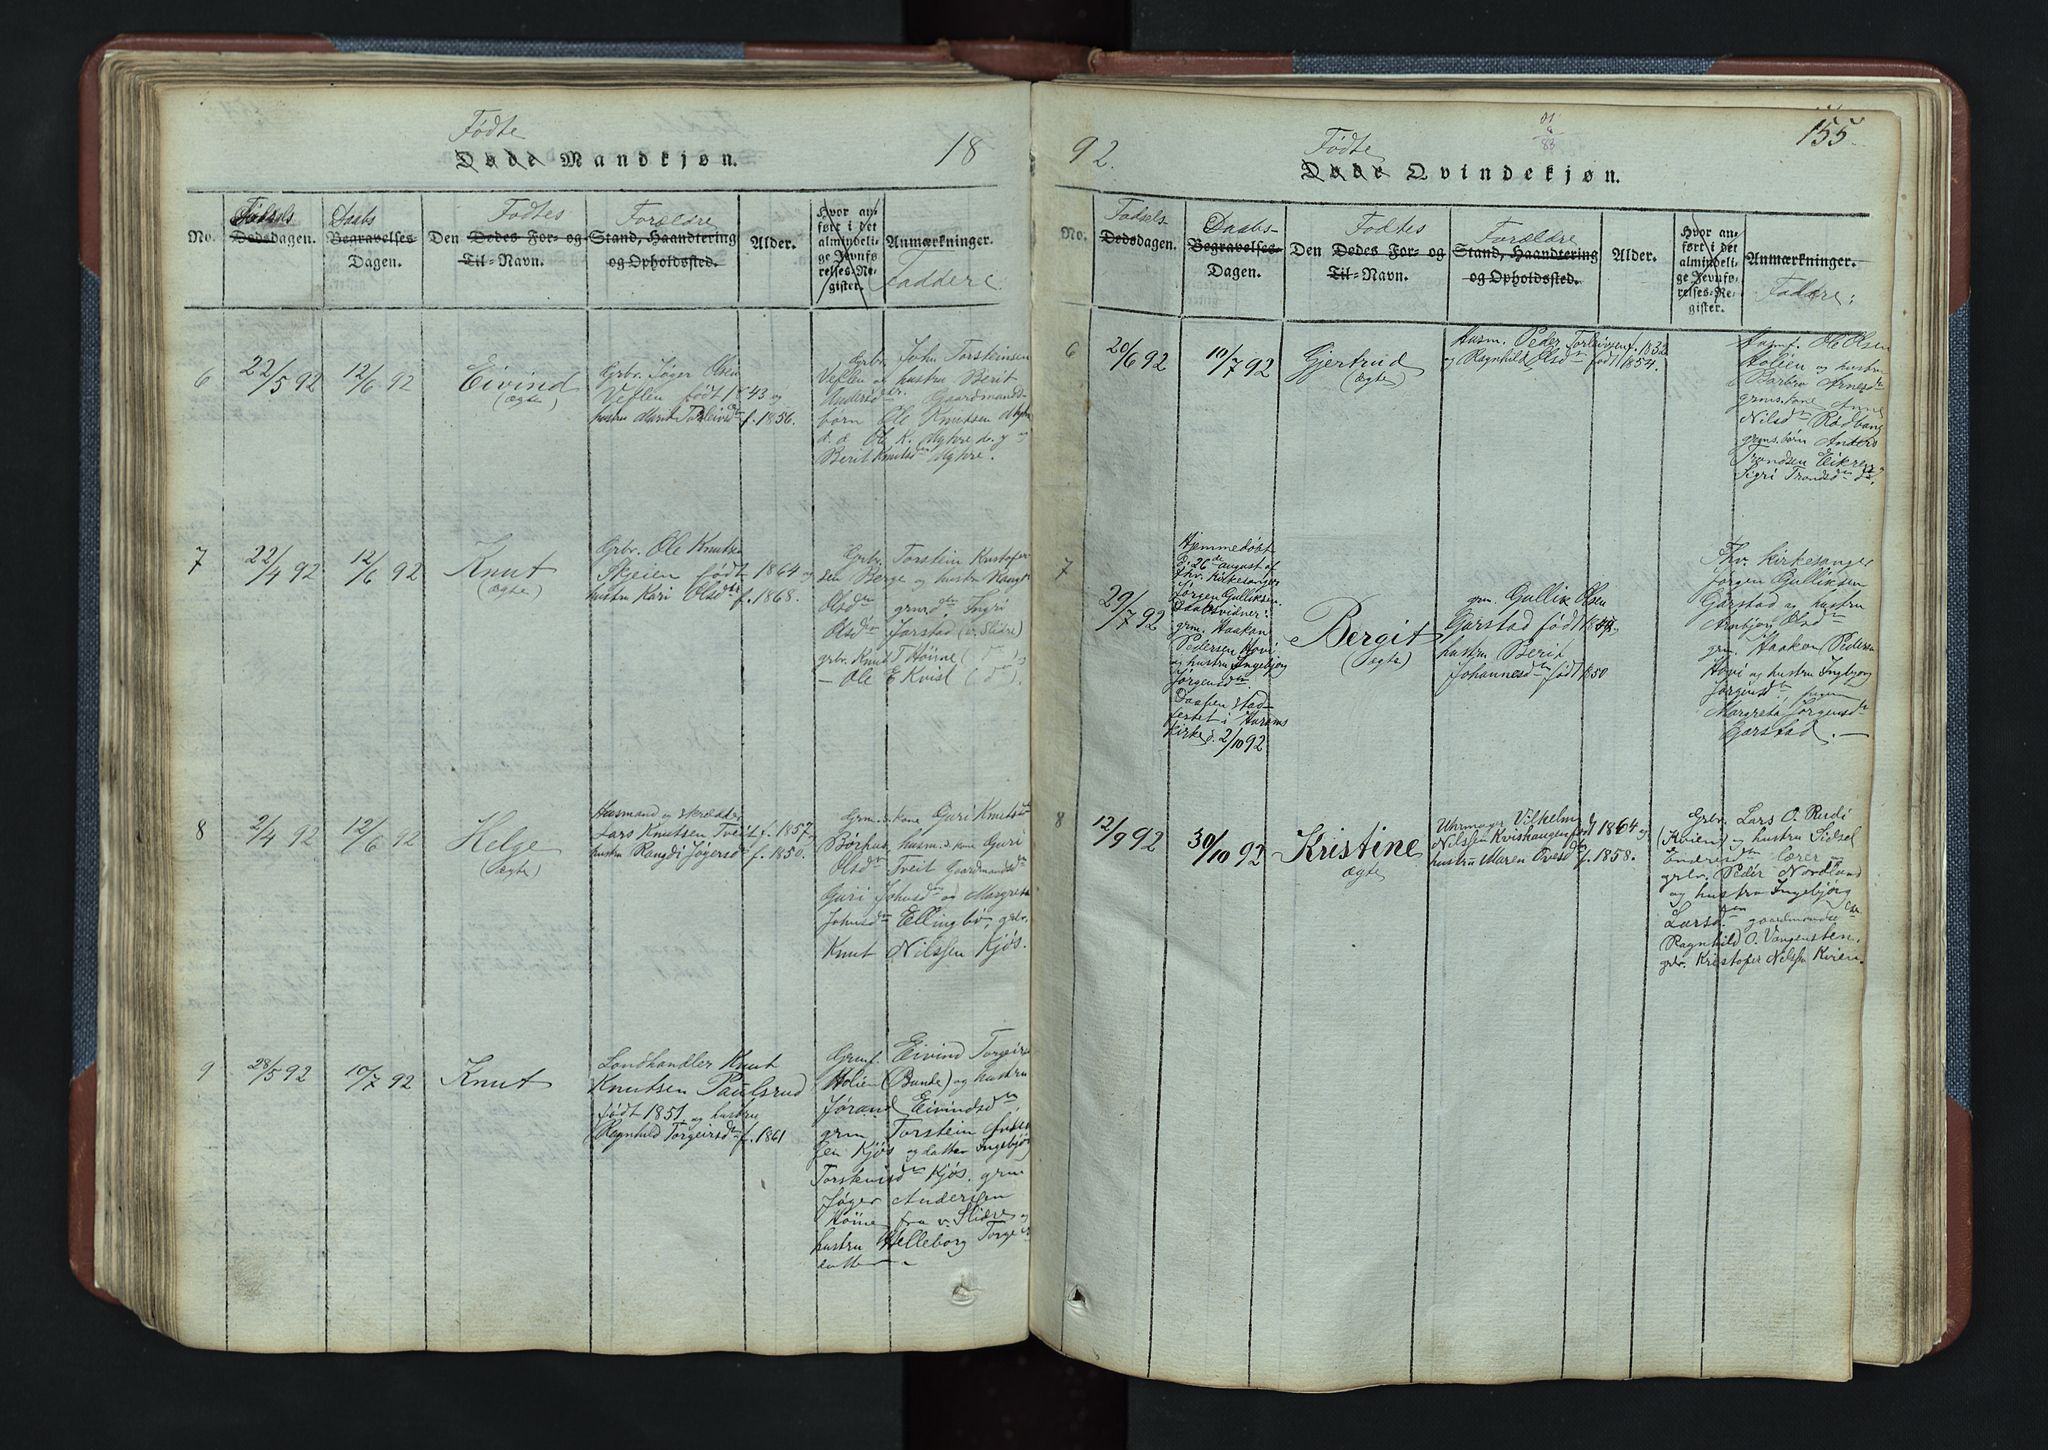 Fødte
Døde Mandkjøn.
18
No.
Fødsels
Dødsdagen.
Daabs
Begravelses
Dagen.
Fødtes
Den Dødes For- og
Til-Navn.
Forældre
Stand, Haandtering
og Opholdssted.
Alder.
Hvor an-
ført i det
almindeli-
ge Jevnfø-
relses-Re-
gister.
Anmærkninger.
Faddere
6
22/5 92
12/6 92
Eivind
(ægte)
Grbr. Jøger Olsen
Veflen født 1843 og
hustru Marit Torleivsdtr f. 1856.
Grbr. John Torsteinsen
Veflen og hustru Berit
Andersdtr. Gaardmands-
børn Ole Knutsen Myhre
d. æ. Ole K. Myhre d. y. og
Berit Knutsdtr Myhre.
7
22/4 92
12/6 92
Knut
(ægte)
Grbr. Ole Knutsen
Skjeien født 1864 og
hustru Kari Olsdtr f. 1868.
Grbr. Torstein Kristofer-
sen Berge og hustru
Olsdtr Ingri
Olsdtr Jarstad (v. Slidre)
grbr. Knut T. Høine
— Ole E Kvist
8
2/4 92
12/6 92
Helge
(ægte)
Husmand og skrædder
Lars Knutsen Tveit f. 1857 og
hustru Rangdi Jøgersdtr f. 1850.
Grm.s kone Guri Knutsdtr
husm.s kone Guri
Olsdtr Tveit Gaardmandsd.
Guri Johnsdtr og Margreta
Johnsdtr Ellingbø, grbr.
Knut Nilssen Kjøs.
9
28/5 92
10/7 92
Knut
Landhandler Knut
Knutsen Paulsrud
født 1851 og hustru
Ragnhild Torgeirsdtr f. 1861
Eivind Torgeirs
Holien (Bunde) og hustru
Jørand Eivindsdtr
grm Torstein
sen Kjøs og datter Ingebjør
Torsteinsdtr Kjøs. grm
Jøger Andersen
Høine fra v. Slidre og
hustru Helleborg Torgeirs
datter
92.
Fødte
Døde Qvindekjøn.
155.
No.
Fødsels-
Dødsdagen.
Daabs-
Begravelses-
Dagen.
Fødtes
Den Dødes For- og
Til-Navn.
Forældre
Stand, Haandtering
og Opholdssted.
Alder.
Hvor an-
ført i det
almindeli-
ge Jevnfø-
relses-Re-
gister.
Anmærkninger.
Faddre:
6
20/6 92
10/7 92
Gjertrud
(ægte)
Husm. Peder Torleivsen f. 1832
og Ragnhild Olsdtr født 1854.
Ole Olsen
Holien og hustru
Barbro Arnesdtr
grms. kone Anne
Nilsdtr Rødvang
grms. børn Anders
Trondsen Eikren og
Sigri Trondsdtr ds.
7
29/7 92
Hjemmedøbt
d. 26de august af
fhv. kirkesanger
Jørgen Gulliksen.
Daabsvidner:
grm. Haakon
Pedersen Hovi
og hustru Ingebjørg
Jørgensdtr
Daaben stad-
fæstet i
Kirke d. 2/10 92.
Bergit
(ægte)
grm. Gullik Olsen
Garstad født
hustru Berit
Johannesdtr født 1850
Fhv. Kirkesanger
Jørgen Gulliksen
Garstad og hustru
Arnbjør Olsdtr
grm. Haakon Pedersen
Hovi og hustru Ingebjørg
Jørgensdtr, pigen
Margreta Jørgensdtr
Garstad. —
8
12/9 92
30/10 92
Kristine
ægte
Uhrmager Vilhelm
Nilssen Kvishaugen født 1864 og
hustru Maren Ovesdtr f. 1858.
Grbr. Lars O. Rudi
(Kvien) og hustru Sidsel
Endresdtr lærer og
grbr. Peder Nordland
og hustru Ingebjørg
Larsdtr gaardmandsd
Ragnhild O. Vangensten,
grbr. Kristofer Nilssen Kvien.